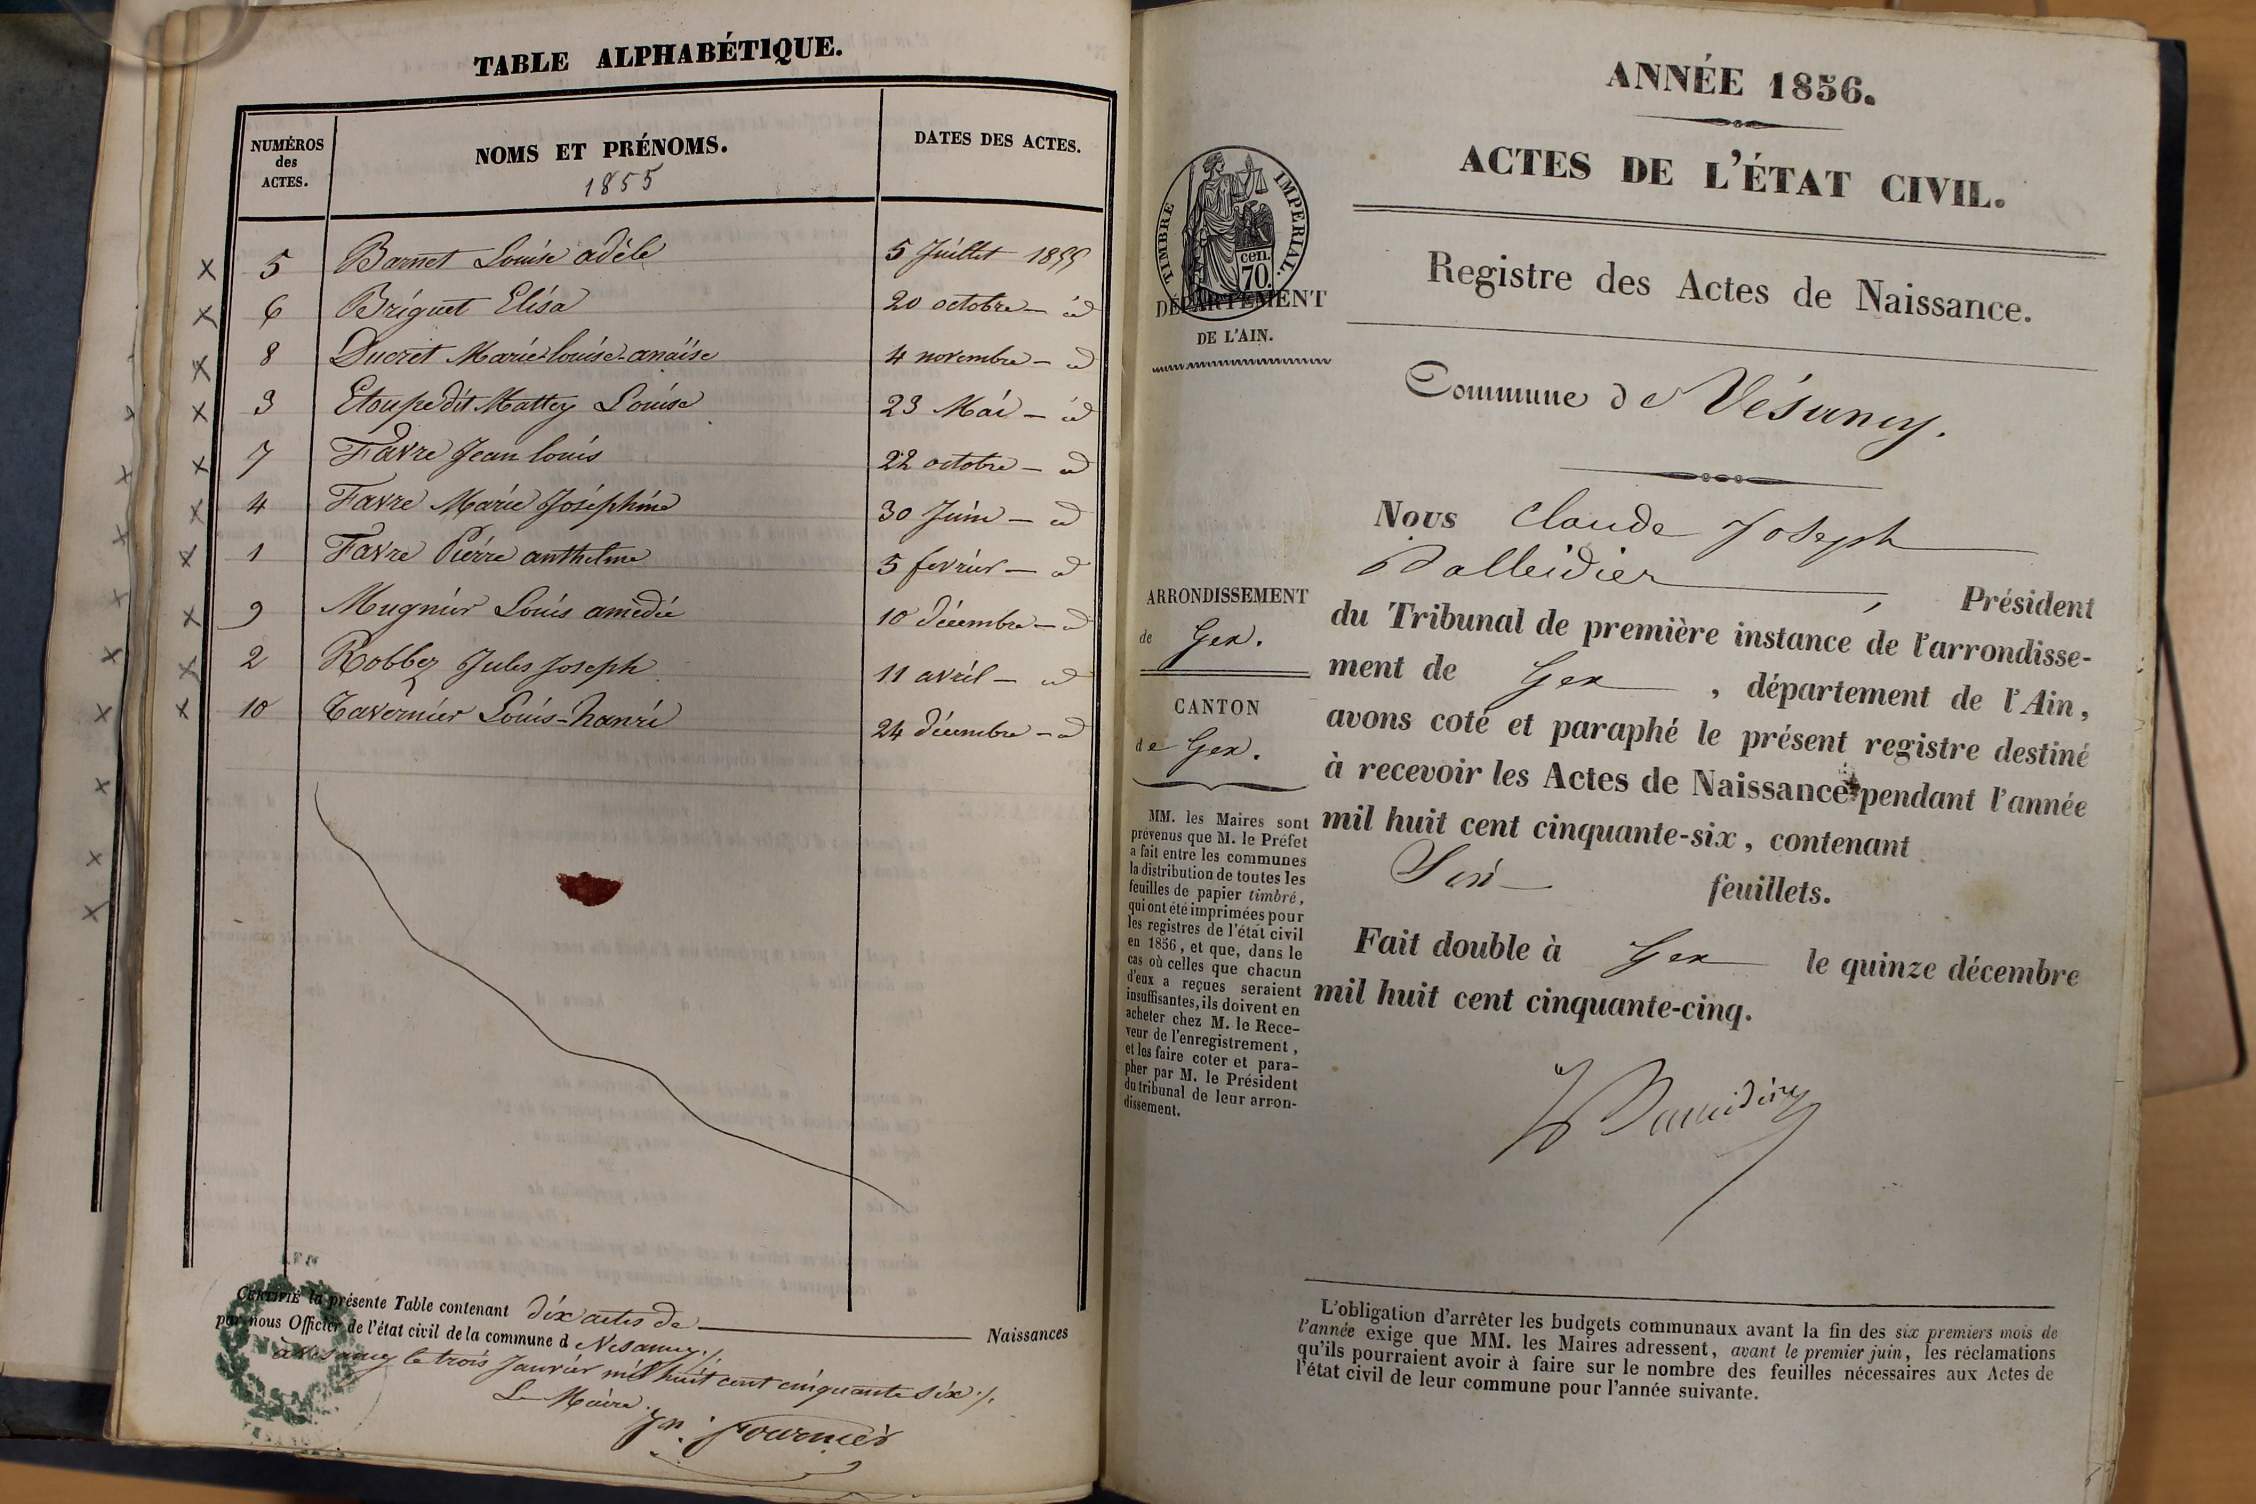 TABLE ALPHABÉTIQUE.
NUMÉROS
des
ACTES.
NOMS ET PRÉNOMS.
1855
DATES DES ACTES.
5 Barnet Louise adèle 5 Juillet 1855
6 Briguet Elisa 20 octobre – id
8 Ducret Marie-louise-anaïse 4 novembre – id
3 Etoupe dit Mattey Louise 23 Mai – id
7 Favre Jean louis 22 octobre – id
4 Favre Marie Joséphine 30 Juin – id
1 Favre Pierre anthelme 5 fevrier – id
9 Mugnier Louis amédée 10 décembre – id
2 Robbez Jules Joseph 11 avril – id
10 Tavernier Louis-hanri 24 décembre – id
CERTIFIÉ la présente Table contenant dix actes de Naissances
par nous Officier de l'état civil de la commune d Vesancy
à Vesancy le trois Janvier mil huit cent cinquante six ./.
Le Maire
Jn. Fournier
ANNÉE 1856.
ACTES DE L'ÉTAT CIVIL.
TIMBRE IMPERIAL.
cen.
70.
DÉPARTEMENT
DE L'AIN.
Registre des Actes de Naissance.
Commune de Vésancy.
Nous Claude Joseph
Balleidier, Président
ARRONDISSEMENT
de Gex.
CANTON
de Gex.
du Tribunal de première instance de l'arrondisse-
ment de Gex, département de l'Ain,
avons coté et paraphé le présent registre destiné
à recevoir les Actes de Naissance pendant l'année
mil huit cent cinquante-six, contenant
Six feuillets.
Fait double à Gex le quinze décembre
mil huit cent cinquante-cinq.
MM. les Maires sont
prévenus que M. le Préfet
a fait entre les communes
la distribution de toutes les
feuilles de papier timbré,
qui ont été imprimées pour
les registres de l'état civil
en 1856, et que, dans le
cas où celles que chacun
d'eux a reçues seraient
insuffisantes, ils doivent en
acheter chez M. le Rece-
veur de l'enregistrement,
et les faire coter et para-
pher par M. le Président
du tribunal de leur arron-
dissement.
L'obligation d'arrêter les budgets communaux avant la fin des six premiers mois de
l'année exige que MM. les Maires adressent, avant le premier juin, les réclamations
qu'ils pourraient avoir à faire sur le nombre des feuilles nécessaires aux Actes de
l'état civil de leur commune pour l'année suivante.